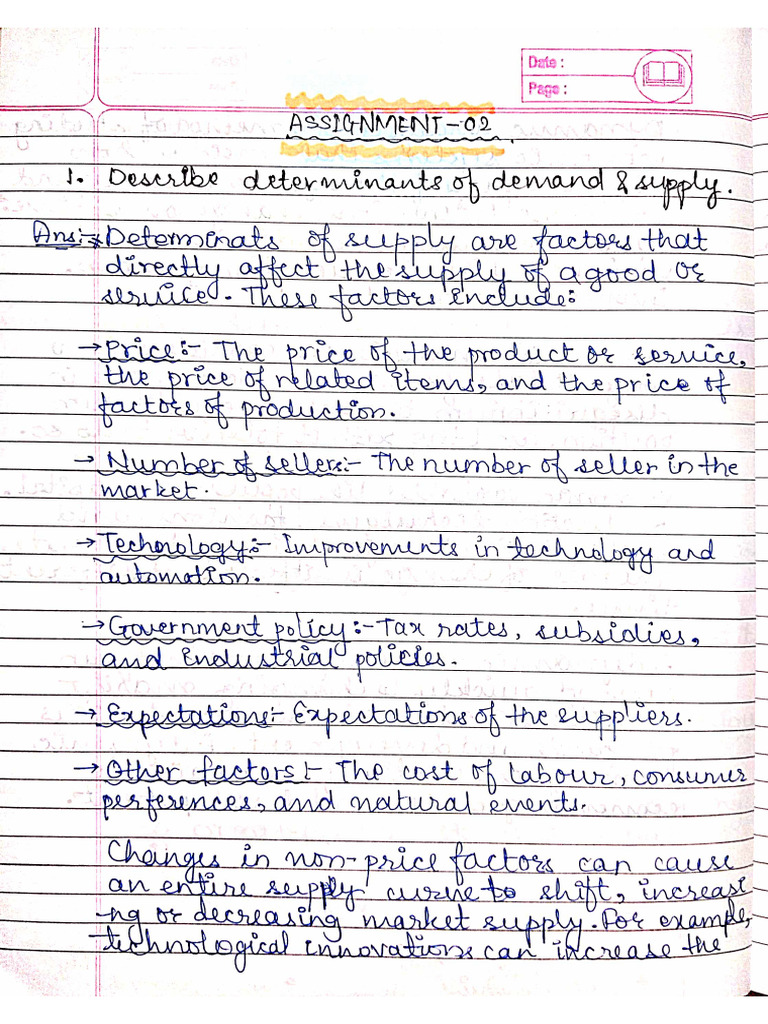 Date :
Page :
ASSIGNMENT-02
1. Describe determinants of demand & supply.
Ans:→ Determinats of supply are factors that
directly affect the supply of a good or
service. These factors include:
→ Price:- The price of the product or service,
the price of related items, and the price of
factors of production.
→ Number of sellers:- The number of seller in the
market.
→ Technology:- Improvements in technology and
automation.
→ Government policy:- Tax rates, subsidies,
and Industrial policies.
→ Expectations:- Expectations of the suppliers.
→ Other factors:- The cost of labour, consumer
perferences, and natural events.
Changes in non-price factors can cause
an entire supply curve to shift, increasi
-ng or decreasing market supply. For example,
technological innovations can increase the